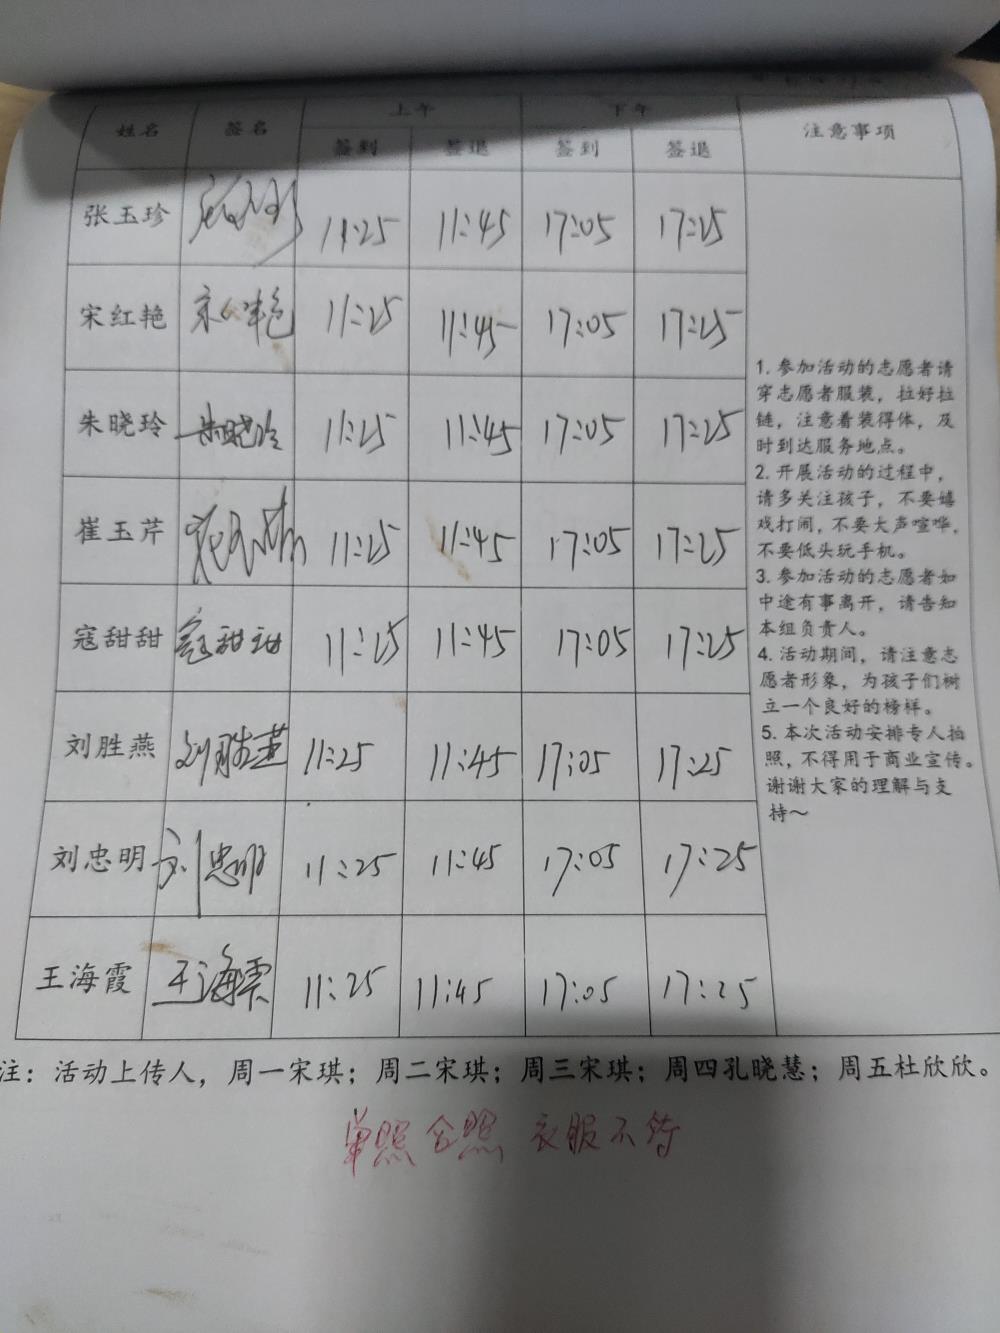 姓名 签名 上午 下午 注意事项
签到 签退 签到 签退
张玉珍 11:25 11:45 17:05 17:25
宋红艳 宋红艳 11:25 11:45 17:05 17:25
朱晓玲 朱晓玲 11:25 11:45 17:05 17:25
崔玉芹 11:25 11:45 17:05 17:25
寇甜甜 寇甜甜 11:25 11:45 17:05 17:25
刘胜燕 刘胜燕 11:25 11:45 17:05 17:25
刘忠明 刘忠明 11:25 11:45 17:05 17:25
王海霞 王海霞 11:25 11:45 17:05 17:25
1. 参加活动的志愿者请
穿志愿者服装，拉好拉
链，注意着装得体，及
时到达服务地点。
2. 开展活动的过程中，
请多关注孩子，不要嬉
戏打闹，不要大声喧哗，
不要低头玩手机。
3. 参加活动的志愿者如
中途有事离开，请告知
本组负责人。
4. 活动期间，请注意志
愿者形象，为孩子们树
立一个良好的榜样。
5. 本次活动安排专人拍
照，不得用于商业宣传。
谢谢大家的理解与支
持～
注：活动上传人，周一宋琪；周二宋琪；周三宋琪；周四孔晓慧；周五杜欣欣。
单照 合照 衣服不符